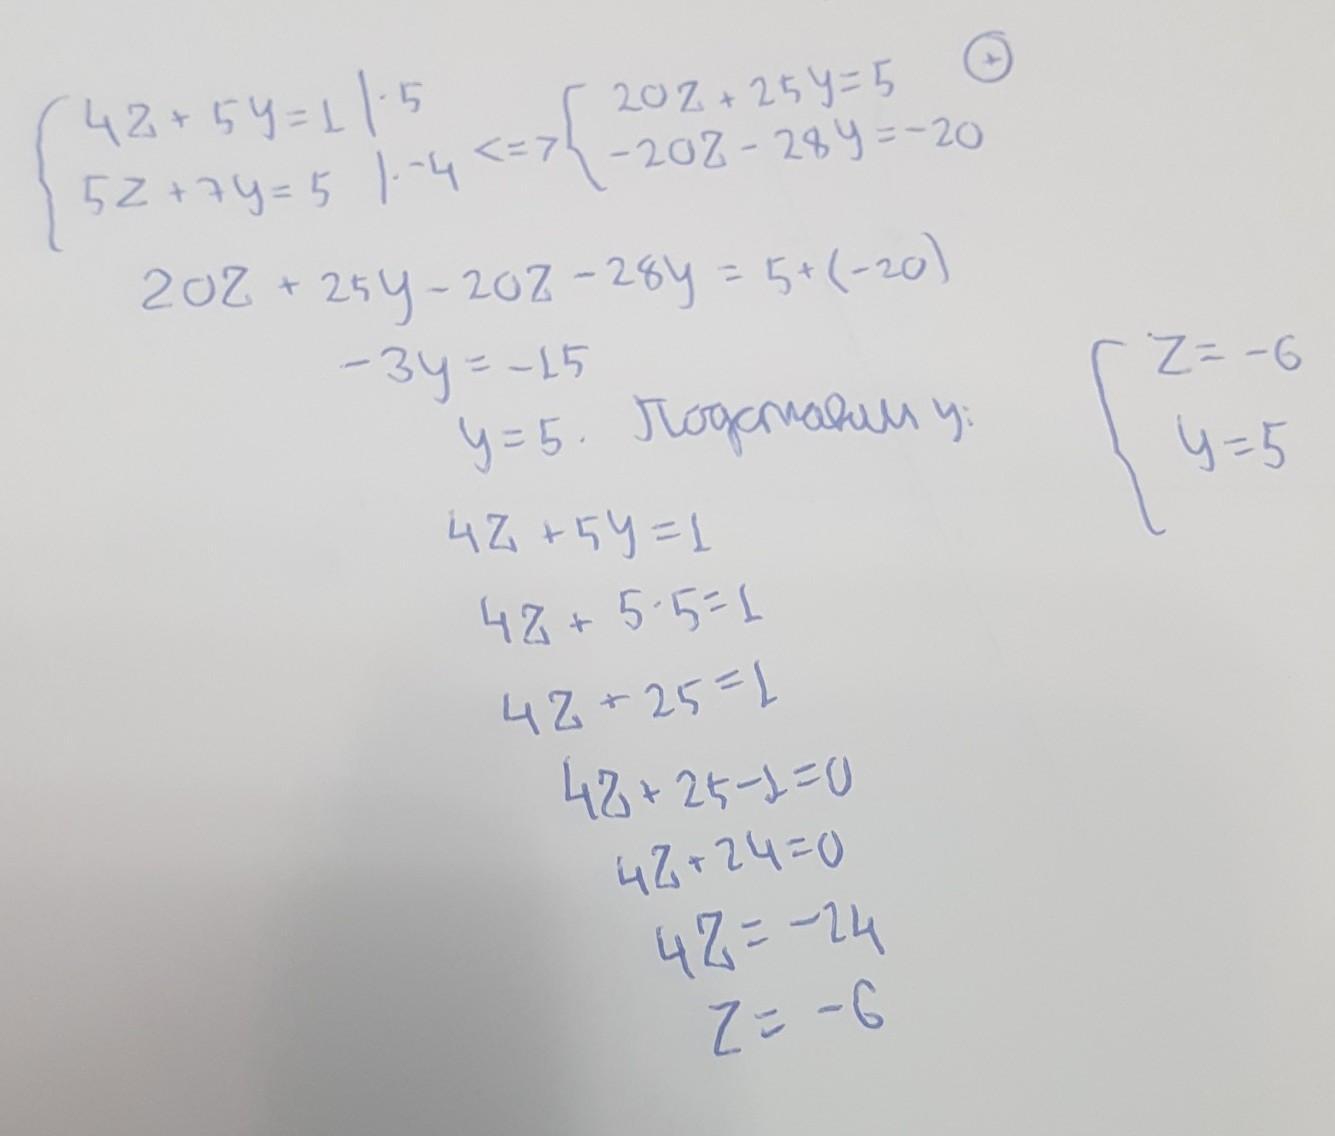 4z + 5y = 1 | · 5 <=> 20z + 25y = 5 +
5z + 7y = 5 | · -4 -20z - 28y = -20
20z + 25y - 20z - 28y = 5 + (-20)
-3y = -15
y = 5. Подставим y:
4z + 5y = 1
4z + 5·5 = 1
4z + 25 = 1
4z + 25 - 1 = 0
4z + 24 = 0
4z = -24
z = -6
z = -6
y = 5